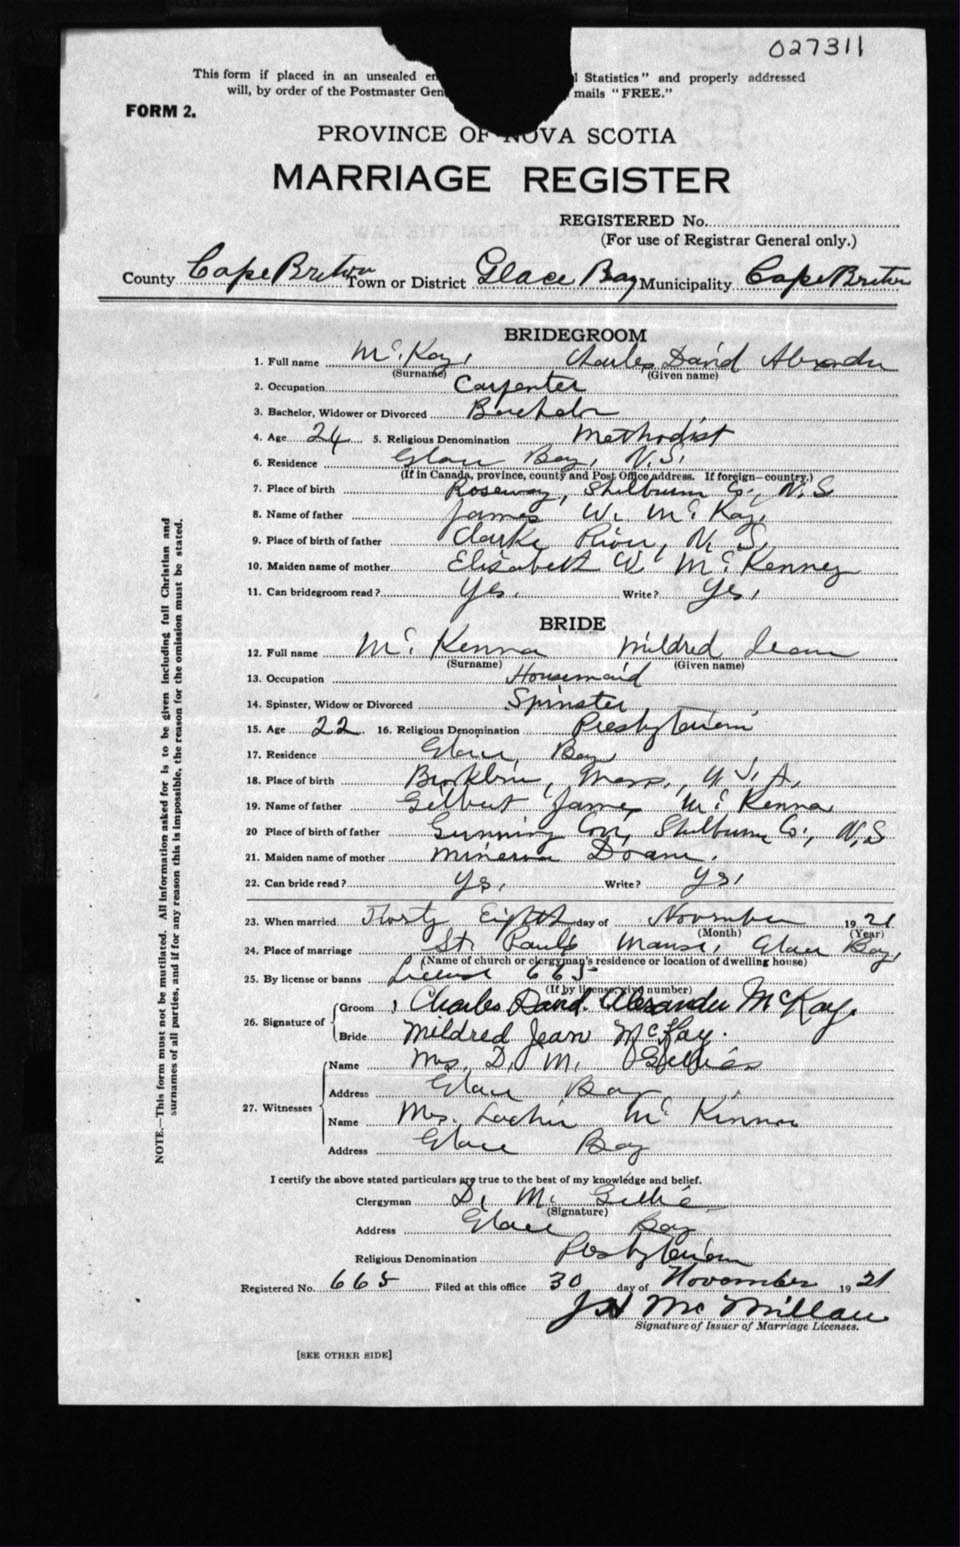 027311
This form if placed in an unsealed en l Statistics" and properly addressed
will, by order of the Postmaster Gen mails "FREE."
FORM 2.
PROVINCE OF NOVA SCOTIA
MARRIAGE REGISTER
REGISTERED No.
(For use of Registrar General only.)
County Cape Breton Town or District Glace Bay Municipality Cape Breton
BRIDEGROOM
1. Full name McKay, Charles David Alexander
(Surname) (Given name)
2. Occupation Carpenter
3. Bachelor, Widower or Divorced Bachelor
4. Age 24 5. Religious Denomination Methodist
6. Residence Glace Bay, N.S.
(If in Canada, province, county and Post Office address. If foreign—country.)
7. Place of birth Roseway, Shelburne Co., N.S
8. Name of father James W. McKay,
9. Place of birth of father Clarke River, N.S.
10. Maiden name of mother Elisabeth W. McKenney
11. Can bridegroom read? Yes. Write? Yes,
BRIDE
12. Full name McKenna Mildred Jean
(Surname) (Given name)
13. Occupation Housemaid
14. Spinster, Widow or Divorced Spinster
15. Age 22 16. Religious Denomination Presbyterian
17. Residence Glace Bay
18. Place of birth Mass., U.S.A.
19. Name of father Gilbert James McKenna
20 Place of birth of father Gunning Cove, Shelburne Co., N.S
21. Maiden name of mother Minerva Doane.
22. Can bride read? Yes. Write? Yes,
23. When married Eighth day of November 1921
(Month) (Year)
24. Place of marriage St. Paul's Manse, Glace Bay,
(Name of church or clergyman's residence or location of dwelling house)
25. By license or banns License 665
(If by license, give number)
26. Signature of Groom Charles David Alexander McKay.
Bride Mildred Jean McKay.
27. Witnesses Name Mrs. D. M. Gillies
Address Glace Bay
Name Mrs. McKinnon
Address Glace Bay
I certify the above stated particulars are true to the best of my knowledge and belief.
Clergyman D. M. Gillies
(Signature)
Address Glace Bay
Religious Denomination Presbyterian
Registered No. 665 Filed at this office 30 day of November 1921
J H McMillan
Signature of Issuer of Marriage Licenses.
[SEE OTHER SIDE]
NOTE.—This form must not be mutilated. All information asked for is to be given including full Christian and
surnames of all parties, and if for any reason this is impossible, the reason for the omission must be stated.